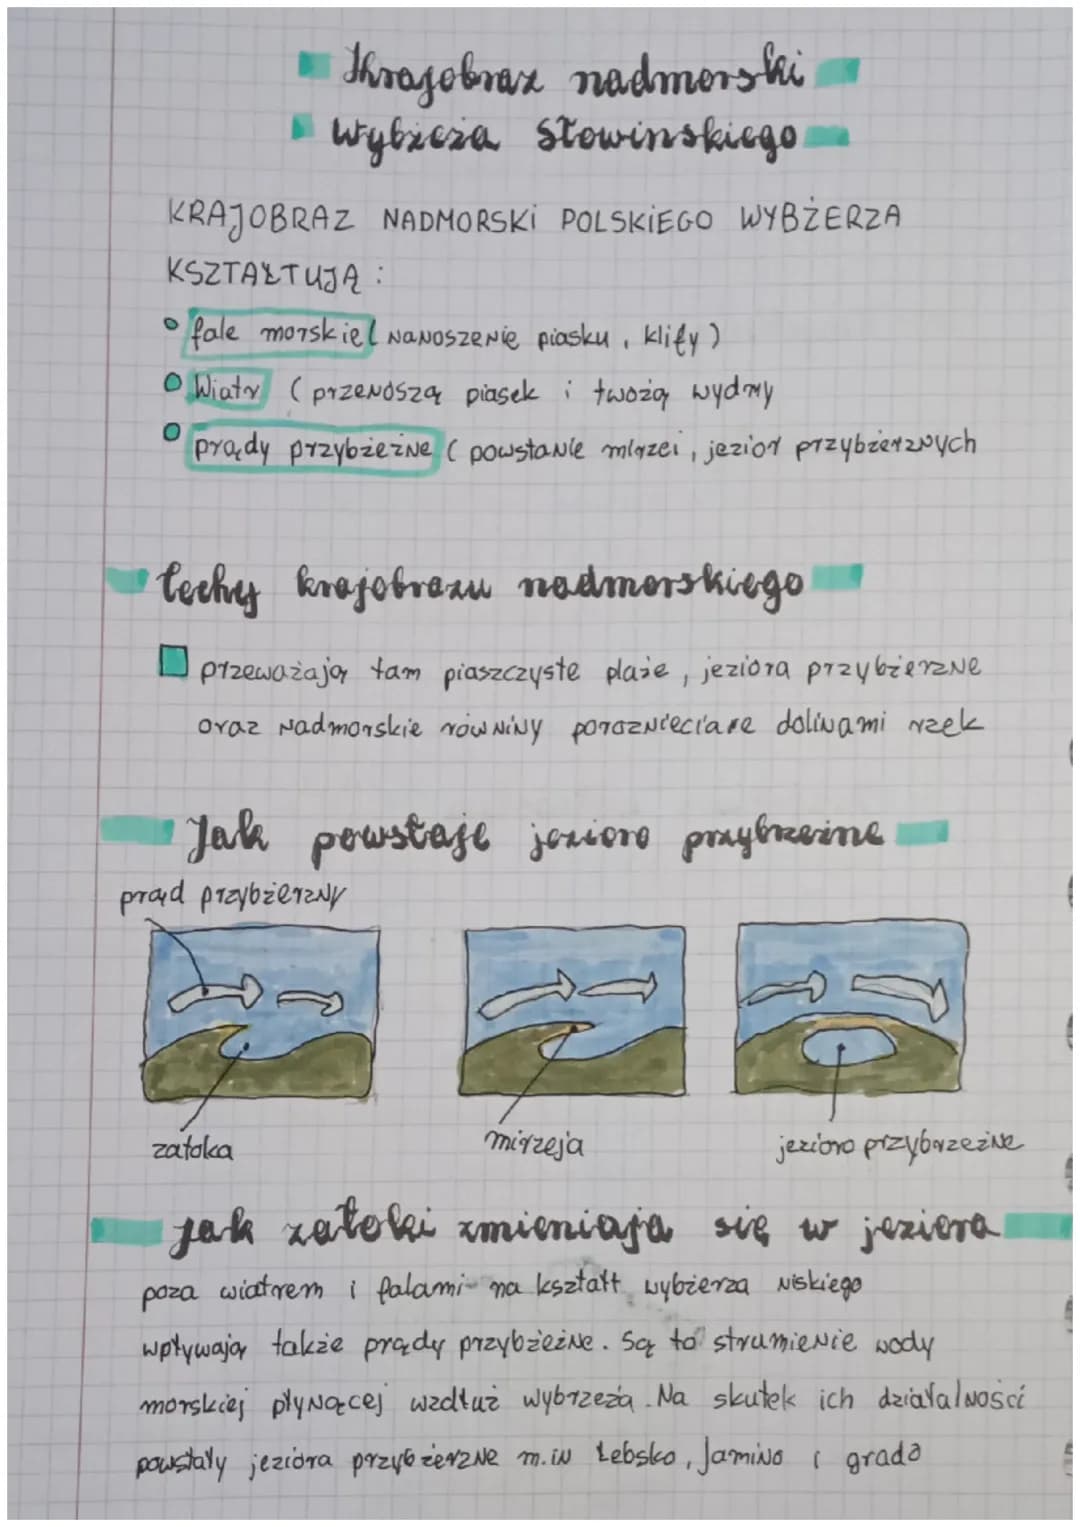 Krajobraz nadmorski
Wybżeża Słowinskiego
KRAJOBRAZ NADMORSKI POLSKIEGO WYBŻERZA
KSZTAŁTUJĄ :
fale morskie ( nanoszenie piasku , klify )
Wiatr ( przenoszą piasek i twożą wydmy
prądy przybżeżne ( powstanie mierzei , jezior przybżerznych
Cechy krajobrazu nadmorskiego
przeważają tam piaszczyste plaże , jeziora przybżerzne
oraz nadmorskie równiny dolinami rzek
Jak powstaje jezioro przybrzeżne
prąd przybżerzny
zatoka
mirzeja
jezioro przybrzeżne
jak zatoki zmieniają się w jeziora
poza wiatrem i falami na kształt wybżerza niskiego
wpływają także prądy przybżeżne. Są to strumienie wody
morskiej płynącej wzdłuż wybrzeża . Na skutek ich działalności
powstały jeziora przybżerzne m.in Łebsko , Jamino i grado